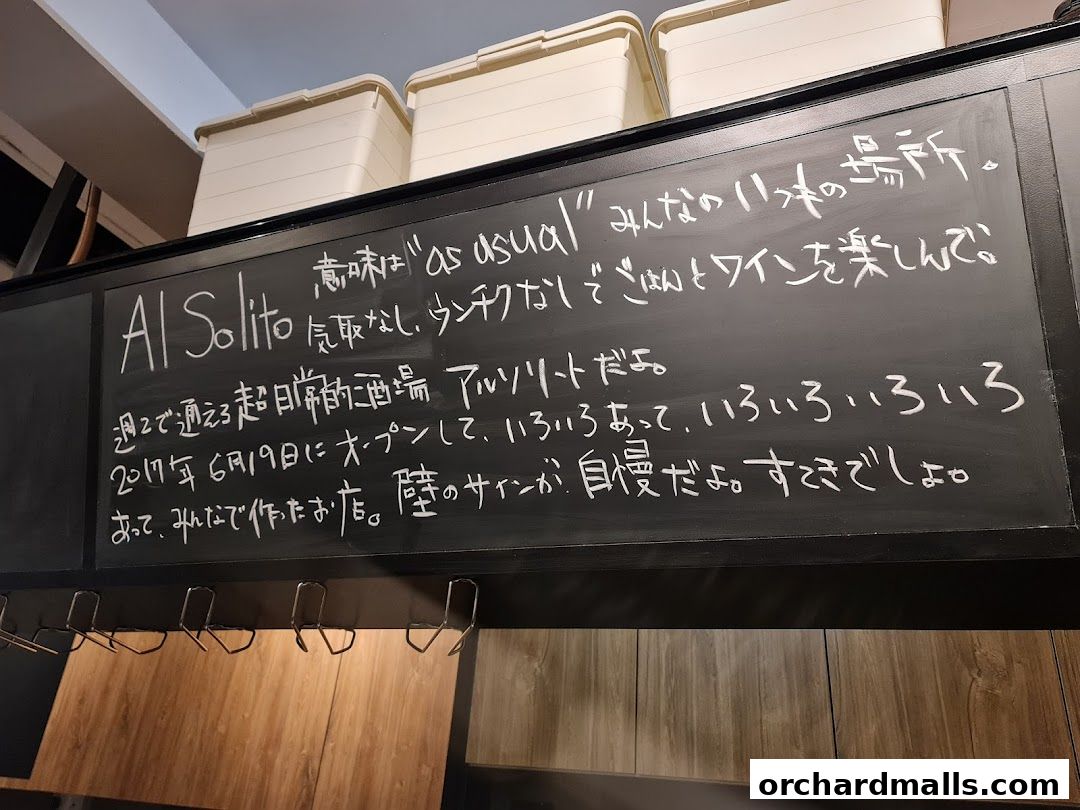 Al Solito
意味は"as usual" みんなのいつもの場所。
気取なし、ウンチクなしでごはんとワインを楽しんで。
週2で通える超日常的酒場 アルソリートだよ。
2017年6月19日にオープンして、いろいろあって、いろいろいろいろ
あって、みんなで作ったお店。壁のサインが自慢だよ。すてきでしょ。
orchardmalls.com